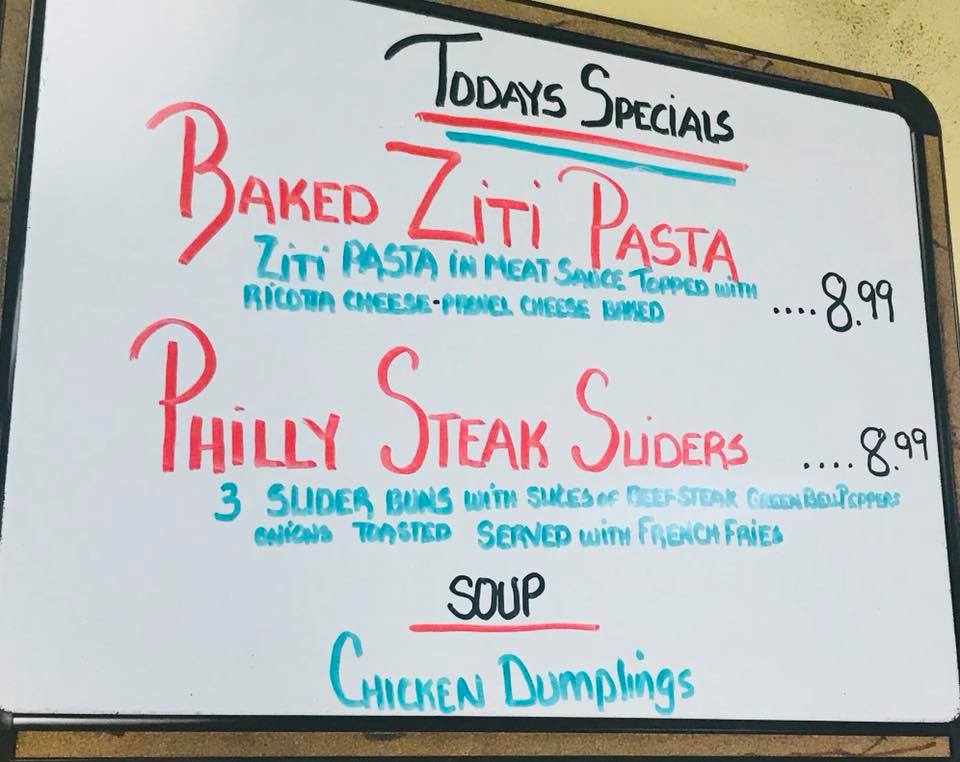 TODAYS SPECIALS
BAKED ZITI PASTA
ZITI PASTA IN MEAT SAUCE TOPPED WITH
RICOTTA CHEESE - CHEESE BAKED
....8.99
PHILLY STEAK SLIDERS ....8.99
3 SLIDER BUNS WITH SLICES OF BEEF STEAK GREEN BELL PEPPERS
ONIONS TOASTED SERVED WITH FRENCH FRIES
SOUP
CHICKEN DUMPLINGS